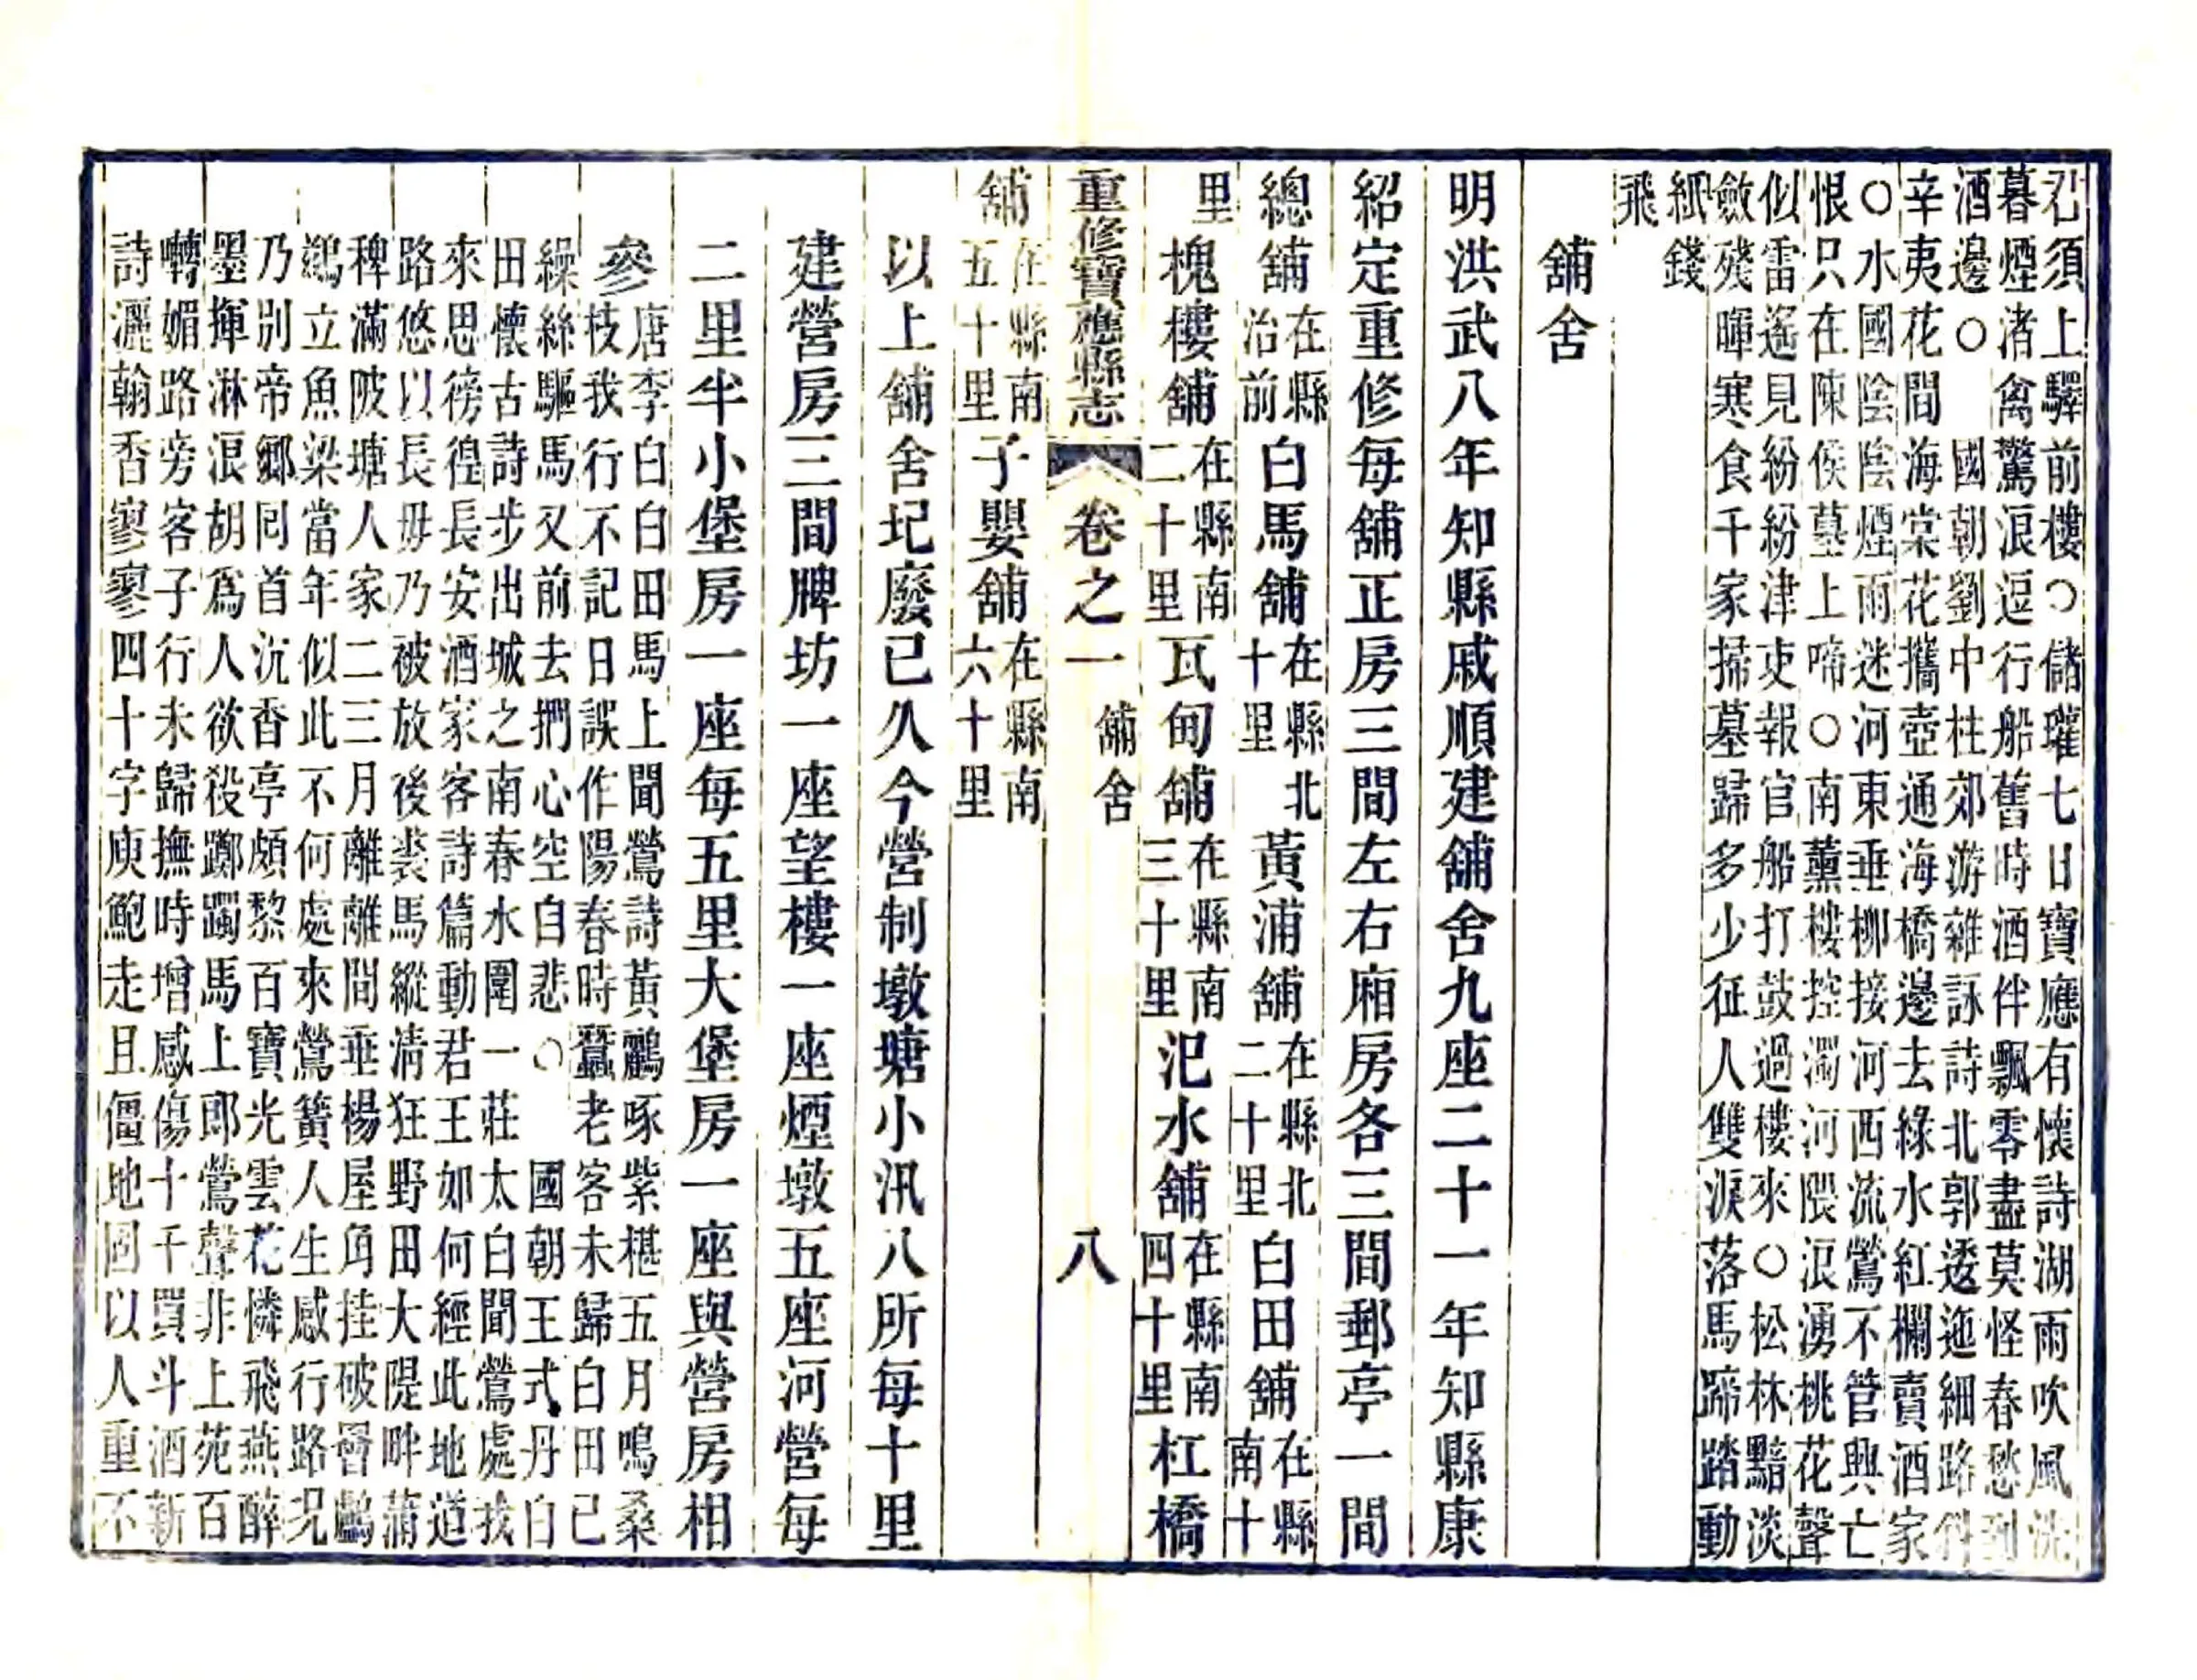 忍須上驛前樓○儲瓘七日寶應有懷詩湖雨吹風洗
暮煙渚禽驚浪逗行船舊時酒伴飄零盡莫怪春愁到
酒邊○　國朝劉中柱郊游雜詠詩北郭逶迤細路斜
辛夷花間海棠花攜壺通海橋邊去綠水紅欄賣酒家
○水國陰陰煙雨迷河東垂柳接河西流鶯不管興亡
恨只在陳侯墓上啼○南薰樓控濁河隈浪湧桃花聲
似雷遙見紛紛津吏報官船打鼓過樓來○松林黯淡
斂殘暉寒食千家掃墓歸多少征人雙淚落馬蹄踏動
紙錢
飛
舖舍
明洪武八年知縣戚順建舖舍九座二十一年知縣康
紹定重修每舖正房三間左右廂房各三間郵亭一間
總舖在縣治前白馬舖在縣北十里黃浦舖在縣北二十里白田舖在縣南十
里槐樓舖在縣南二十里瓦甸舖在縣南三十里氾水舖在縣南四十里杠橋
重修寶應縣志　卷之一　舖舍　八
舖在縣南五十里子嬰舖在縣南六十里
以上舖舍圮廢已久今營制墩塘小汛八所每十里
建營房三間牌坊一座望樓一座煙墩五座河營每
二里半小堡房一座每五里大堡房一座與營房相
參唐李白白田馬上聞鶯詩黃鸝啄紫椹五月鳴桑
枝我行不記日誤作陽春時蠶老客未歸白田已
繰絲驅馬又前去捫心空自悲○　國朝王式丹白
田懷古詩步出城之南春水圍一莊太白聞鶯處我
來思徬徨長安酒家客詩篇動君王如何經此地道
路悠以長毋乃被放後裘馬縱清狂野田大隄畔蒲
稗滿陂塘人家二三月離離間垂楊屋角挂破罾鸕
鷀立魚梁當年似此不何處來鶯簧人生感行路況
乃別帝鄉囘首沉香亭頗黎百寶光雲花憐飛燕醉
墨揮淋浪胡爲人欲殺躑躅馬上郎鶯聲非上苑百
囀媚路旁客子行未歸撫時增感傷十千買斗酒新
詩灑翰香寥寥四十字庾鮑走且僵地固以人重不